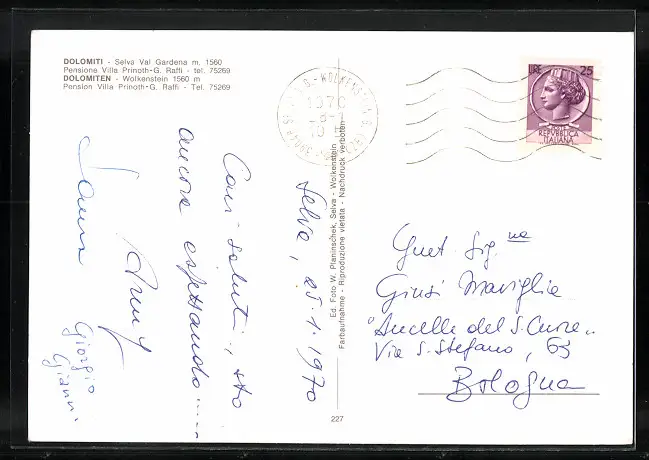 DOLOMITI - Selva Val Gardena m. 1560
Pensione Villa Prinoth - G. Raffi - tel. 75269
DOLOMITEN - Wolkenstein 1560 m
Pension Villa Prinoth - G. Raffi - Tel. 75269
WOLKENSTEIN
1970
LIRE 25
REPUBBLICA
ITALIANA
Selva, 25.1.1970
Cari saluti, sto
ancora aspettando.....
Giorgio
Gianni
Ed. Foto W. Planinschek, Selva - Wolkenstein
Farbaufnahme - Riproduzione vietata - Nachdruck verboten
Gent. Sig.na
Giusi Maviglia
"Ancelle del S. Cuore"
Via S. Stefano, 63
Bologna
227